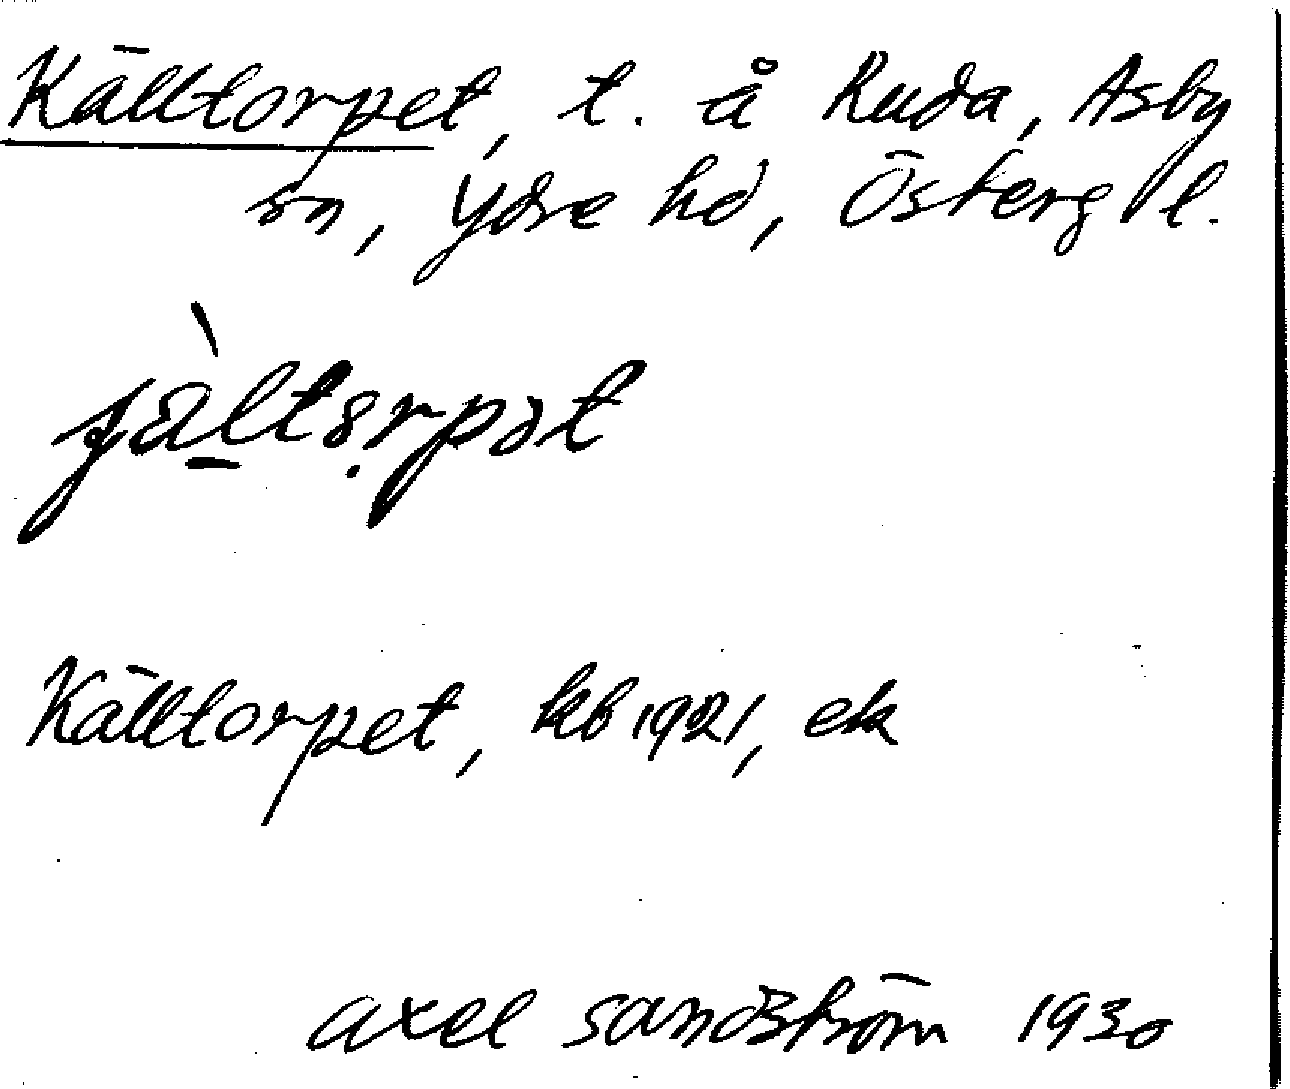 Källtorpet, t. å Ruda, Asby
sn, Ydre hd, Österg l.
Källtorpet, kb 1921, ek
axel sandström 1930